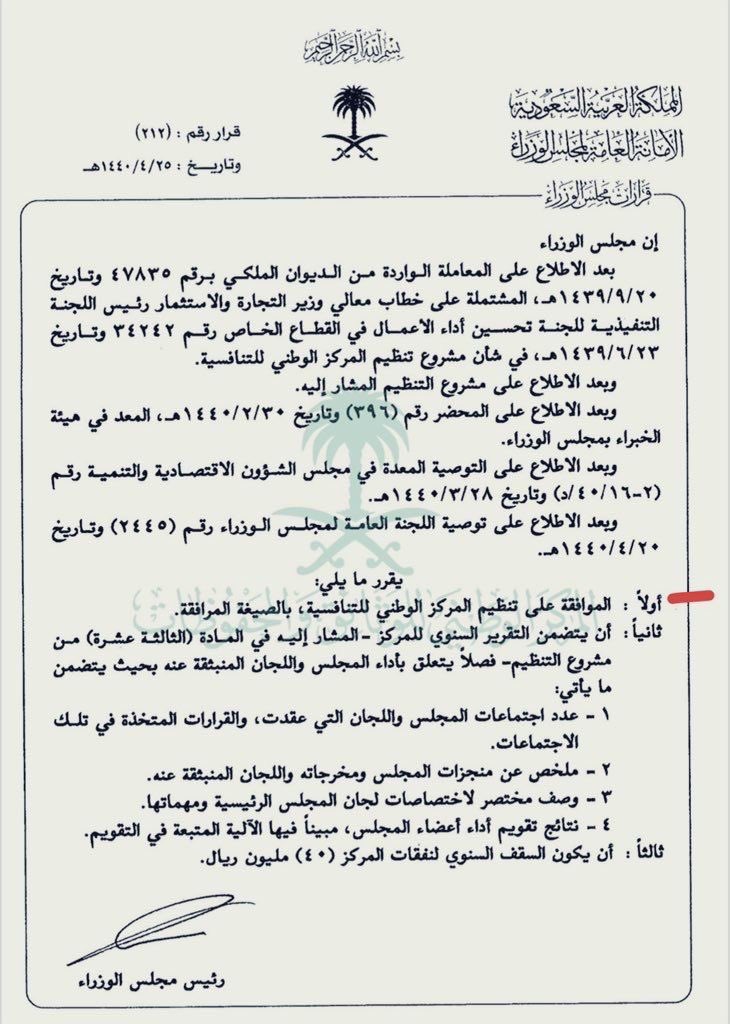 بسم الله الرحمن الرحيم
المملكة العربية السعودية
الأمانة العامة لمجلس الوزراء
قرار رقم : (٢١٢)
وتاريخ : ١٤٤٠/٤/٢٥هـ
قرارات مجلس الوزراء
إن مجلس الوزراء
بعد الاطلاع على المعاملة الواردة من الديوان الملكي برقم ٤٧٨٣٥ وتاريخ
١٤٣٩/٩/٢٠هـ، المشتملة على خطاب معالي وزير التجارة والاستثمار رئيس اللجنة
التنفيذية للجنة تحسين أداء الاعمال في القطاع الخاص رقم ٣٤٢٤٢ وتاريخ
١٤٣٩/٦/٢٣هـ، في شأن مشروع تنظيم المركز الوطني للتنافسية.
وبعد الاطلاع على مشروع التنظيم المشار إليه.
وبعد الاطلاع على المحضر رقم (٣٩٦) وتاريخ ١٤٤٠/٢/٣٠هـ، المعد في هيئة
الخبراء بمجلس الوزراء.
وبعد الاطلاع على التوصية المعدة في مجلس الشؤون الاقتصادية والتنمية رقم
(٢-٤٠/١٦/د) وتاريخ ١٤٤٠/٣/٢٨هـ.
وبعد الاطلاع على توصية اللجنة العامة لمجلس الوزراء رقم (٢٤٤٥) وتاريخ
١٤٤٠/٤/٢٠هـ.
يقرر ما يلي:
المركز الوطني للوثائق والمحفوظات
أولاً : الموافقة على تنظيم المركز الوطني للتنافسية، بالصيغة المرافقة.
ثانياً : أن يتضمن التقرير السنوي للمركز -المشار إليه في المادة (الثالثة عشرة) من
مشروع التنظيم- فصلاً يتعلق بأداء المجلس واللجان المنبثقة عنه بحيث يتضمن
ما يأتي:
١ - عدد اجتماعات المجلس واللجان التي عقدت، والقرارات المتخذة في تلك
الاجتماعات.
٢ - ملخص عن منجزات المجلس ومخرجاته واللجان المنبثقة عنه.
٣ - وصف مختصر لاختصاصات لجان المجلس الرئيسية ومهماتها.
٤ - نتائج تقويم أداء أعضاء المجلس، مبيناً فيها الآلية المتبعة في التقويم.
ثالثاً : أن يكون السقف السنوي لنفقات المركز (٤٠) مليون ريال.
رئيس مجلس الوزراء